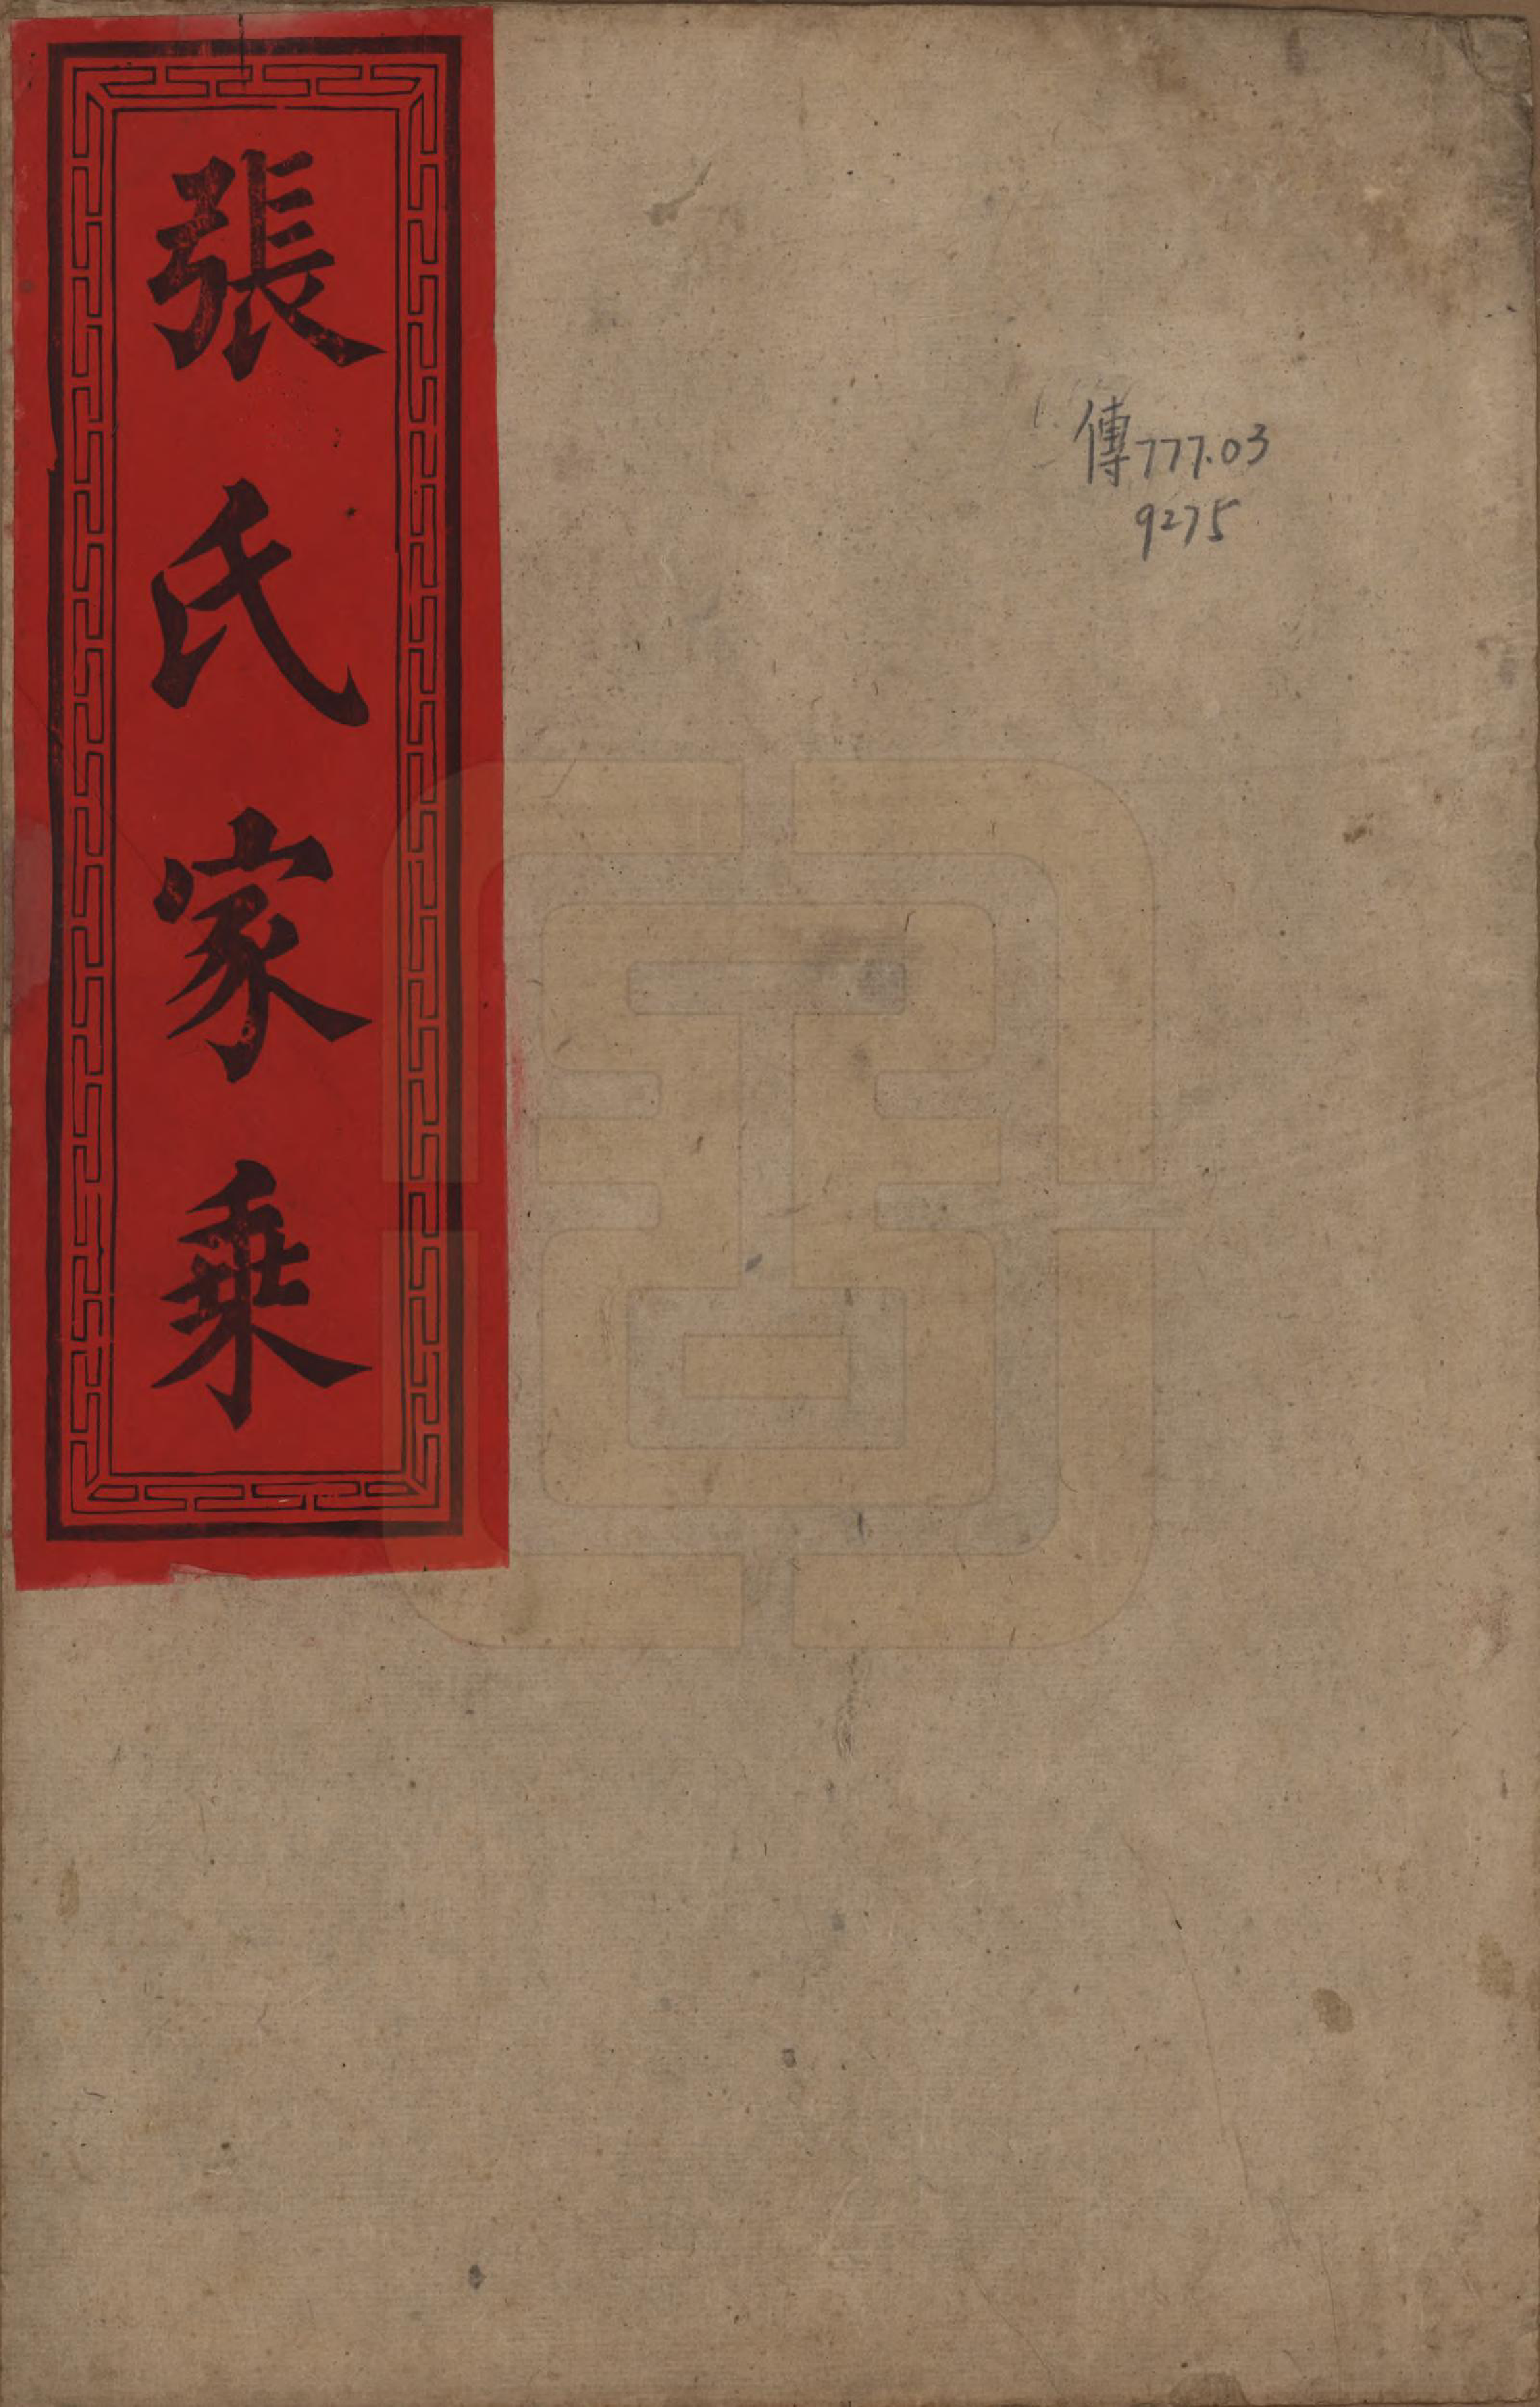 張氏家乗
傳777.03
9275